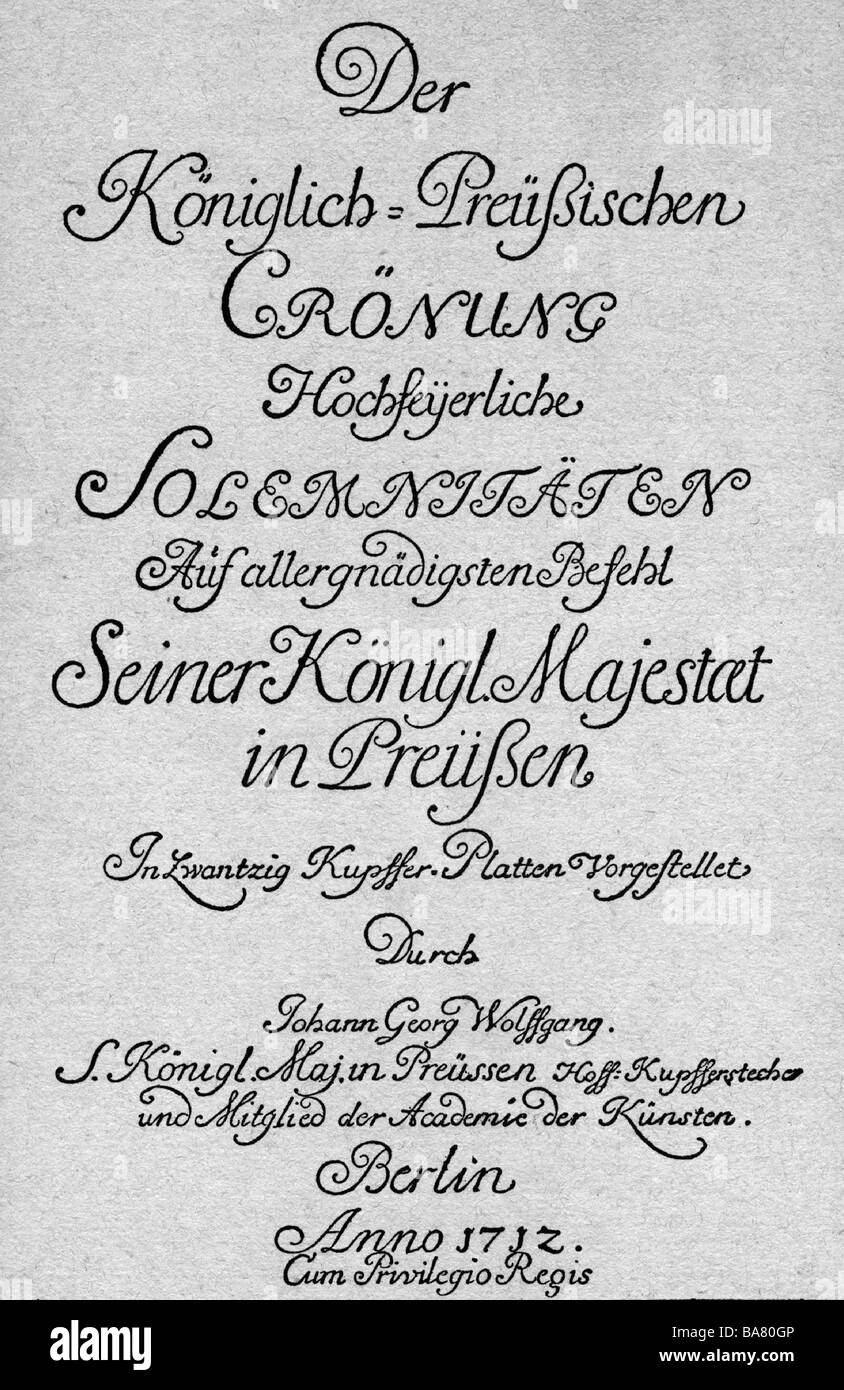 Der
Königlich=Preüßischen
CRÖNUNG
Hochfeÿerliche
SOLEMNITÄTEN
Aüf allergnädigsten Befehl
Seiner Königl. Majestæt
in Preüßen
In Zwantzig Kupffer-Platten Vorgestellet
Durch
Johann Georg Wolffgang.
S. Königl. Maj. in Preüssen Hoff-Kupfferstecher
und Mitglied der Academie der Künsten.
Berlin
Anno 1712.
Cum Privilegio Regis
alamy
Image ID: BA80GP
www.alamy.com